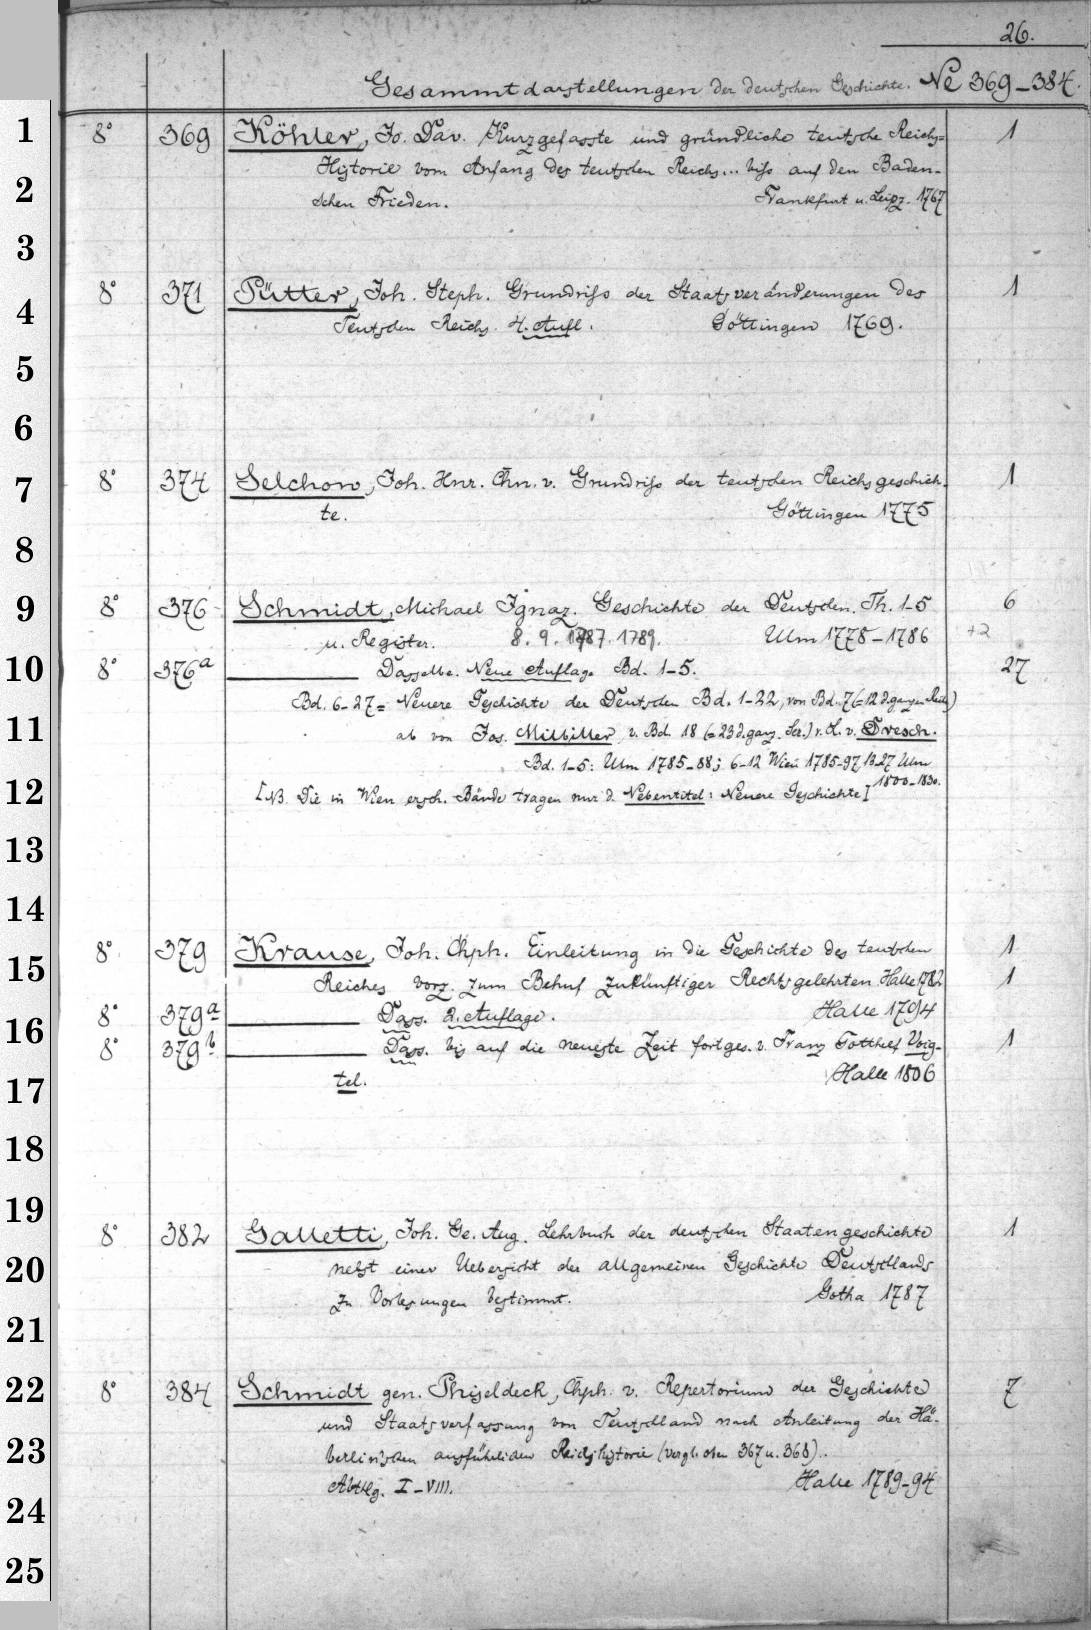 26.
Gesammtdarstellungen der deutschen Geschichte. No 369-384.
1
8° 369 Köhler, Jo. Dav. Kurzgefasste und gründliche teutsche Reichs= 1
Historie vom Anfang des teutschen Reichs... biss auf den Baden-
2
schen Frieden. Frankfurt u. Leipz. 1767
3
8° 371 Pütter, Joh. Steph. Grundriss der Staatsveränderungen des 1
4
Teutschen Reichs. 4. Aufl. Göttingen 1769.
5
6
8° 374 Selchow, Joh. Hnr. Chn. v. Grundriss der teutschen Reichsgeschich- 1
7
te. Göttingen 1775
8
9
8° 376 Schmidt, Michael Ignaz. Geschichte der Deutschen. Th. 1-5 6
u. Register. 8. 9. 1787. 1789. Ulm 1778-1786 +2
10
8° 376a Dasselbe. Neue Auflage Bd. 1-5. 27
Bd. 6-27 = Neuere Geschichte der Deutschen Bd. 1-22, von Bd. 7 (=12 d. ganzen Reihe)
11
ab von Jos. Milbiller, v. Bd. 18 (=23 d. ganz. Ser.) v. L. v. Dresch.
Bd. 1-5: Ulm 1785-88; 6-12 Wien 1785-97, 13-27 Ulm
1800-1830.
12
[NB. Die in Wien ersch. Bände tragen nur d. Nebentitel: Neuere Geschichte]
13
14
8° 379 Krause, Joh. Chph. Einleitung in die Geschichte des teutschen 1
15
Reiches vorz. zum Behuf zukünftiger Rechtsgelehrten Halle 1782 1
16
8° 379a Dass. 2. Auflage. Halle 1794
8° 379b Dass. bis auf die neueste Zeit fortges. v. Franz Gotthelf Voig- 1
17
tel. Halle 1806
18
19
8° 382 Galletti, Joh. Ge. Aug. Lehrbuch der deutschen Staatengeschichte 1
20
nebst einer Uebersicht der allgemeinen Geschichte Deutschlands
zu Vorlesungen bestimmt. Gotha 1787
21
22
8° 384 Schmidt gen. Phiseldeck, Chph. v. Repertorium der Geschichte 7
und Staatsverfassung von Teutschland nach Anleitung der Hä-
23
berlinschen ausführlichen Reichshistorie (vergl. oben 367 u. 368).
Abtlg. I-VIII. Halle 1789-94
24
25